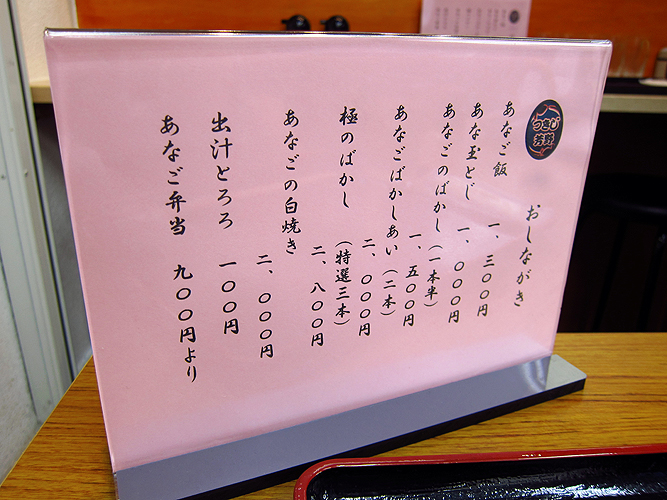 つきじ
芳野
おしながき
あなご飯 一、三〇〇円
あな玉とじ 一、〇〇〇円
あなごのばかし(一本半) 一、五〇〇円
あなごばかしあい(二本) 二、〇〇〇円
極のばかし(特選三本) 二、八〇〇円
あなごの白焼き 二、〇〇〇円
出汁とろろ 一〇〇円
あなご弁当 九〇〇円より